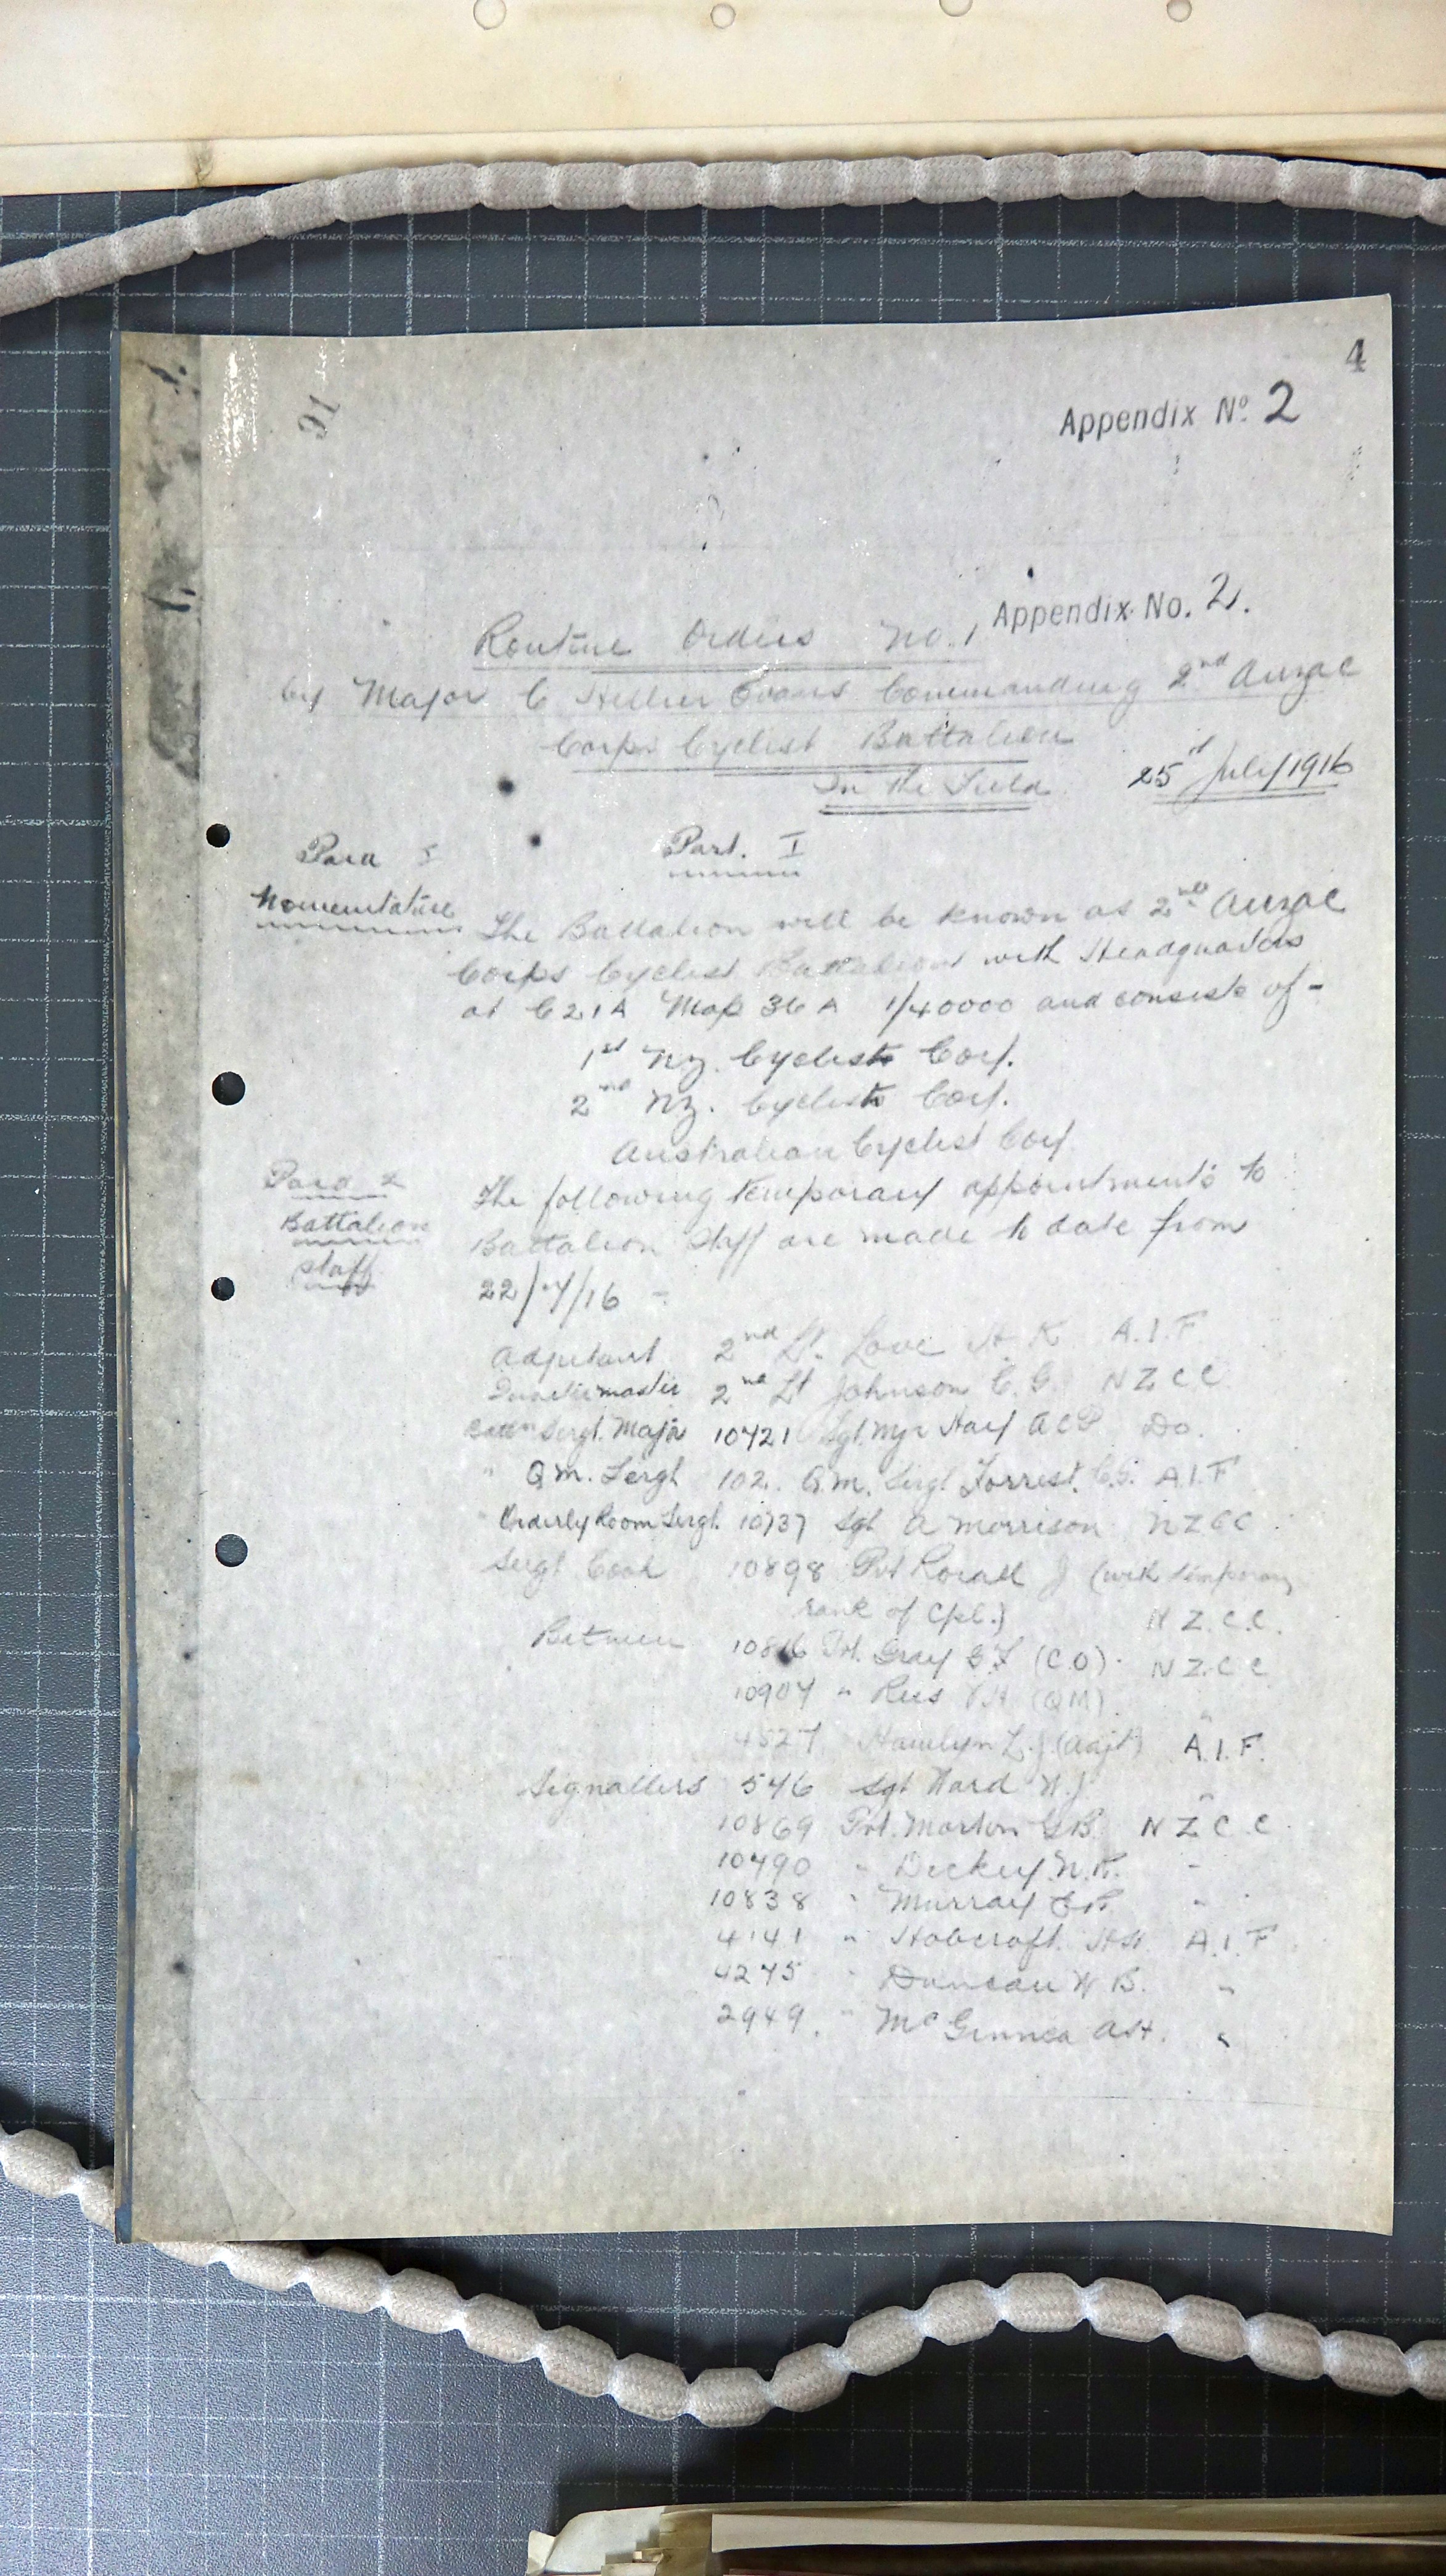 4
91
Appendix No. 2
Appendix No. 2.
Routine Orders No. 1
by Major C Hellier Evans Commanding 2nd Anzac
Corps Cyclist Battalion
In the Field 25st July 1916
Para I Part. I
Nomenclature
The Battalion will be known as 2nd Anzac
Corps Cyclist Battalion with Headquarters
at C21A Map 36A 1/40000 and consists of -
1st NZ. Cyclists Coy.
2nd NZ. Cyclists Coy.
Australian Cyclist Coy
Para 2
Battalion
Staff
The following temporary appointments to
Battalion Staff are made to date from
22/7/16 -
Adjutant 2nd Lt. Love H. K A.I.F
Quartermaster 2nd Lt Johnson C. G. N Z C C
Battn Sergt. Major 10421 Sgt. Mjr Hay A C P Do.
" Q M. Sergt 102. Q. M. Sergt Forrest. C. G. A.I.F
Orderly Room Sergt. 10737 Sgt A Morrison N Z C C
Sergt Cook 10898 Pvt J (with temporary
rank of Cpl.) N. Z. C. C.
Batmen 10816 Pvt. Gray (C.O). N Z. C C
10907 " Rees (QM) "
4527 Hamlyn L. J. (Adjt) A. I. F.
Signallers 546 Sgt Ward W. J "
10869 Pvt. Morton G B. N Z C. C.
10490 " Dickey. "
10838 " Murray "
4141 " Hobcroft. A. I. F.
4275 " Duncan W B. "
2949. " A. H. "